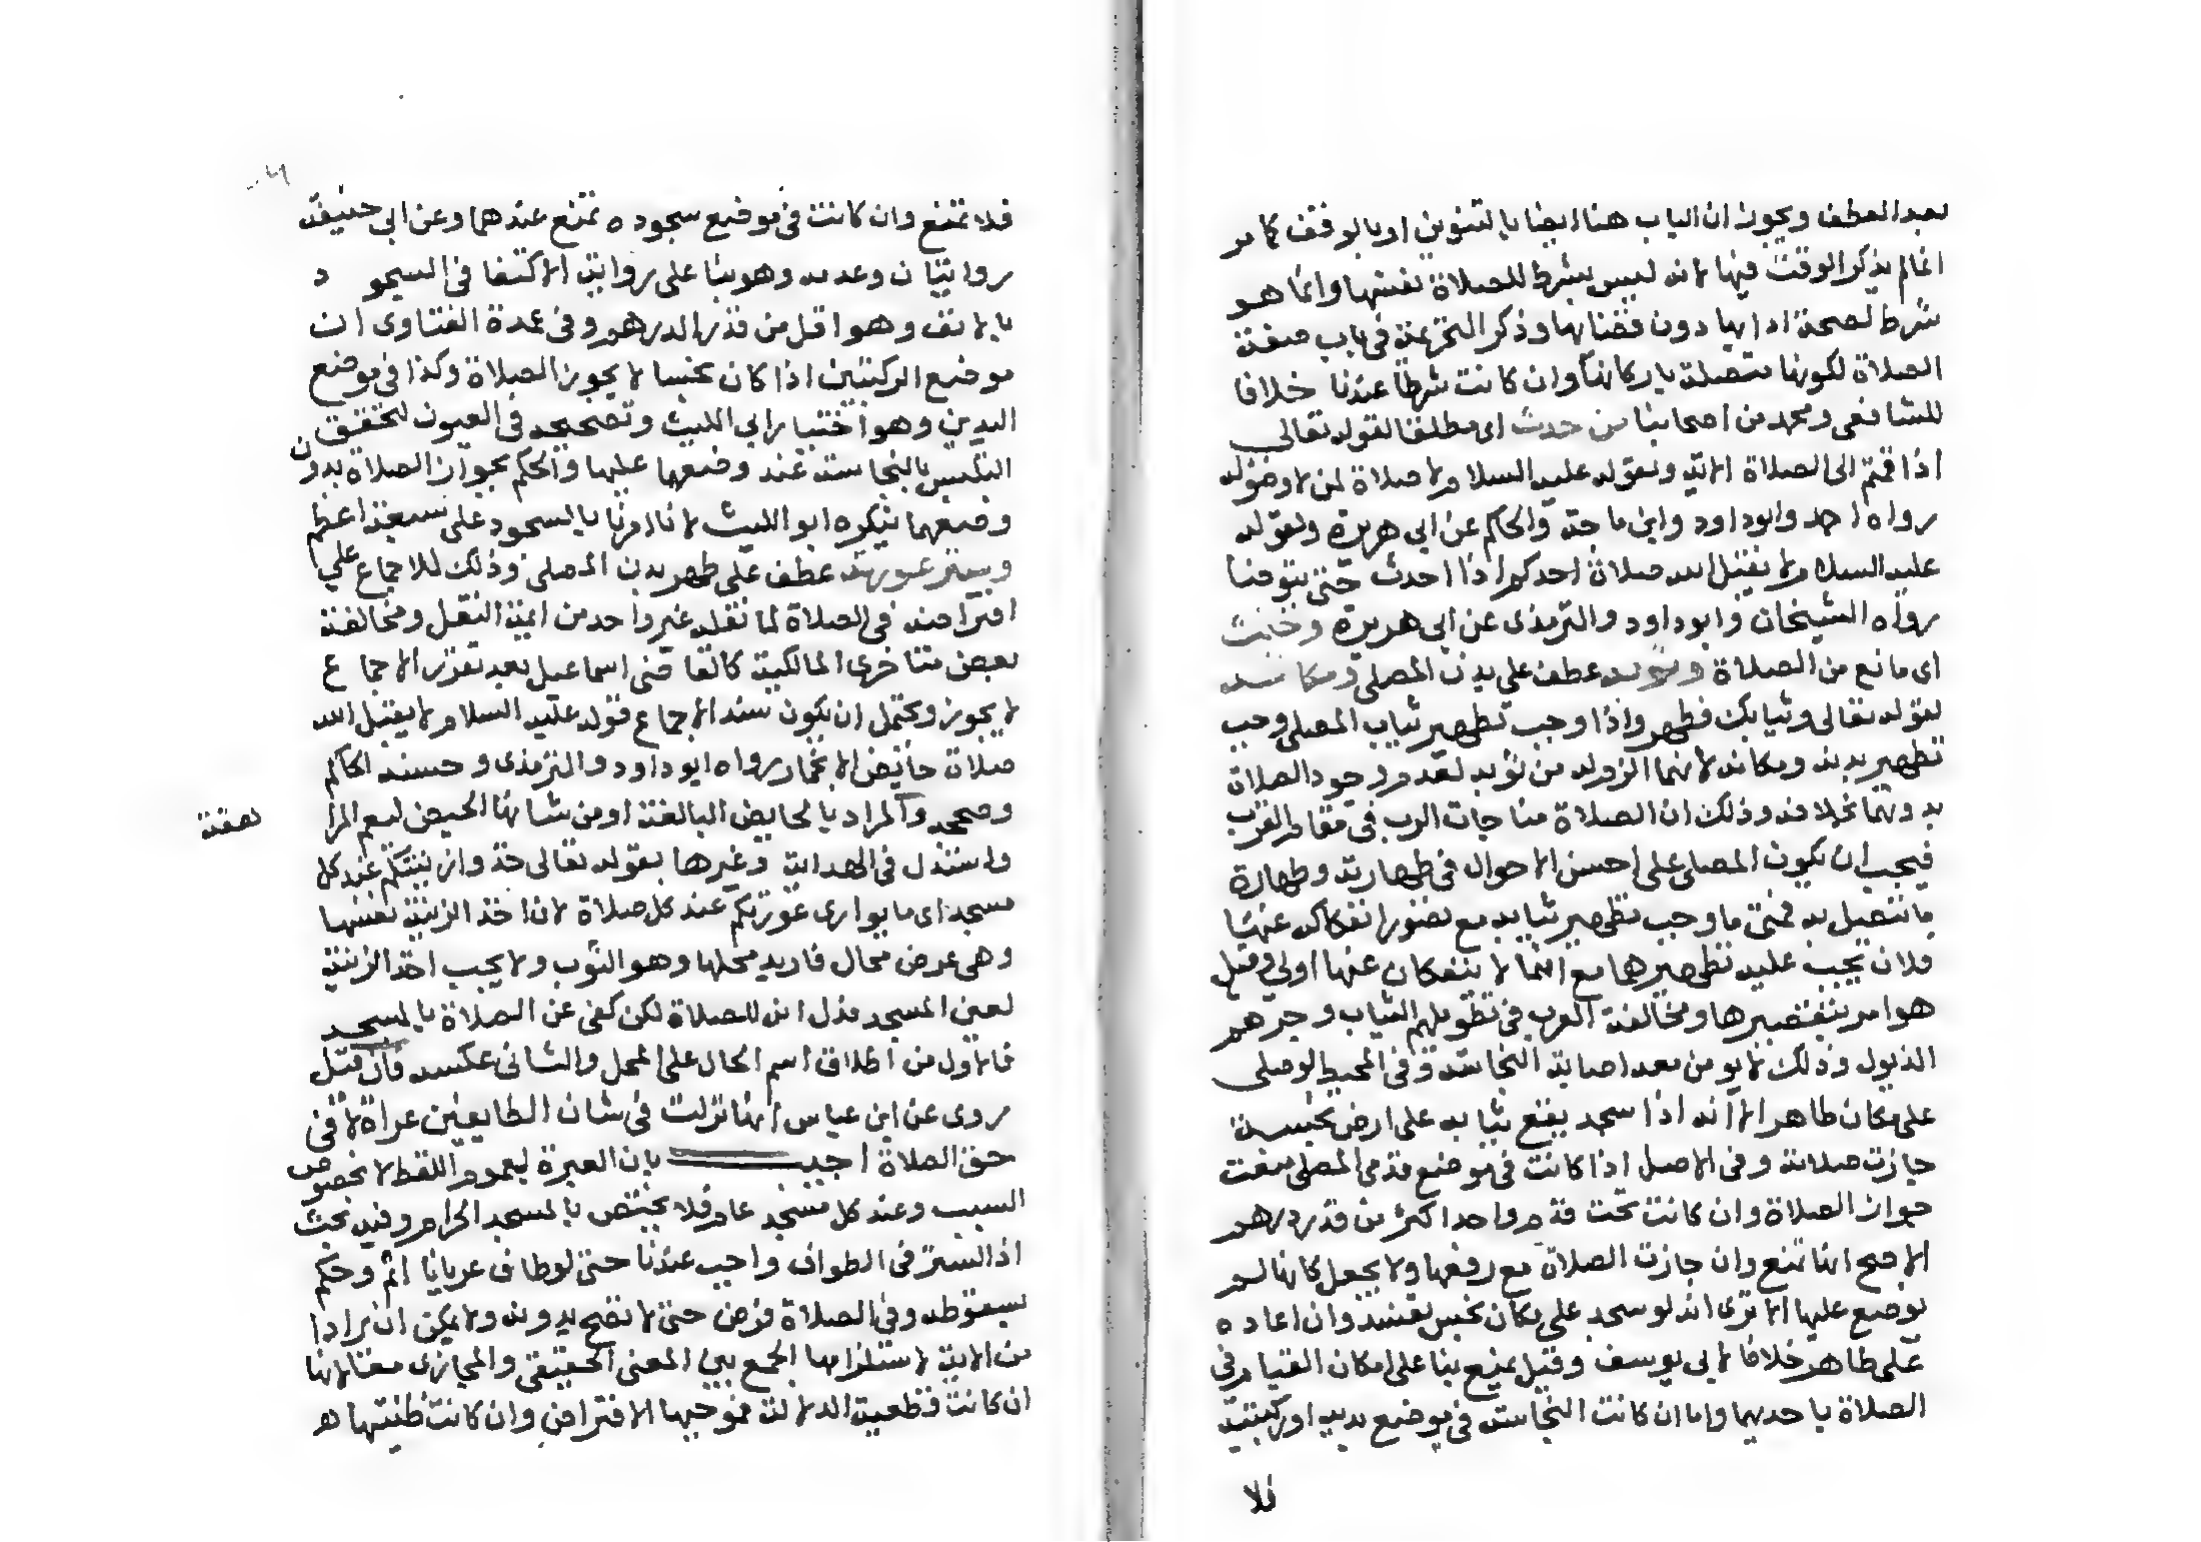 بعد العطف ويجوز ان الباب هنا ايضا بالتنوين او بالوقف كما مر
انما لم يذكر الوقت فيها لانه ليس بشرط للصلاة نفسها وانما هو
شرط لصحة ادايها دون قضايها وذكر التحريمة في باب صفة
الصلاة لكونها متصلة باركانها وان كانت شرطا عندنا خلافا
للشافعي ومحمد من اصحابنا من حدث اي مطلقا لقوله تعالى
اذا قمتم الى الصلاة الاية ولقوله عليه السلام لا صلاة لمن لا وضوله
رواه احمد وابوداود وابن ماجة والحاكم عن ابي هريرة ولقوله
عليه السلام لا يقبل الله صلاة احدكم اذا احدث حتى يتوضا
رواه الشيخان وابوداود والترمذي عن ابي هريرة وخبث
اي مانع من الصلاة وثوبه عطف على بدن المصلي ومكانه
لقوله تعالى وثيابك فطهر واذا وجب تطهير ثياب المصلي وجب
تطهير بدنه ومكانه لانهما الزم له من ثوبه لعدم وجود الصلاة
بدونهما بخلافه وذلك ان الصلاة مناجات الرب في مقام القرب
فيجب ان يكون المصلي على احسن الاحوال في طهارته وطهارة
ما يتصل به فمتى ما وجب تطهير ثيابه مع تصور انفكاكه عنها
فلان يجب عليه تطهيرها مع انهما لا ينفكان عنها اولى وقيل
هو امر بتقصيرها ومخالفة العرب في تطويلهم الثياب وجرهم
الذيول وذلك لا يومن معه اصابة النجاسة وفي المحيط لو صلى
على مكان طاهر الا انه اذا سجد يقع ثيابه على ارض نجسة
جازت صلاته وفي الاصل اذا كانت في موضع قدمي المصلي منعت
جواز الصلاة وان كانت تحت قدم واحد اكثر من قدر درهم
الاصح انها تمنع وان جازت الصلاة مع رفعها ولا يجعل كانها لم
توضع عليها الا ترى انه لو سجد على مكان نجس تفسد وان اعاده
على طاهر خلافا لابي يوسف وقيل يمنع بنا على امكان القيام في
الصلاة باحديهما واما ان كانت النجاسة في موضع يديه او ركبتيه
فلا
فلا تمنع وان كانت في موضع سجوده تمنع عندهما وعن ابي حنيفة
روايتان وعدمه وهو بنا على رواية الاكتفا في السجود
بالانف وهو اقل من قدر الدرهم وفي عمدة الفتاوى ان
موضع الركبتين اذا كان نجسا لا يجوز الصلاة وكذا في موضع
اليدين وهو اختيار ابي الليث وتصحيحه في العيون لتحقق
التلبس بالنجاسة عند وضعها عليها والحكم بجواز الصلاة بدون
وضعهما ينكره ابو الليث لانا امرنا بالسجود على سبعة اعظم
وستر عورته عطف على طهر بدن المصلي وذلك للاجماع على
افتراضه في الصلاة لما نقله غير واحد من ايمة النقل ومخالفة
بعض متاخري المالكية كالقاضي اسماعيل بعد تقرر الاجماع
لا يجوز ويحتمل ان يكون سند الاجماع قوله عليه السلام لا يقبل الله
صلاة حايض الا بخمار رواه ابوداود والترمذي وحسنه الحاكم
وصححه والمراد بالحايض البالغة او من شانها الحيض ليعم المرا
هقة
واستدل في الهداية وغيرها بقوله تعالى خذوا زينتكم عند كل
مسجد اي ما يواري عورتكم عند كل صلاة لان اخذ الزينة نفسها
وهي عرض محال فاريد محلها وهو الثوب ولا يجب اخذ الزينة
لعين المسجد فدل انه للصلاة لكن كنى عن الصلاة بالمسجد
فالاول من اطلاق اسم الحال على المحل والثاني عكسه فان قيل
روي عن ابن عباس انها نزلت في شان الطايفين عراة لا في
حق الصلاة اجيب بان العبرة لعموم اللفظ لا بخصوص
السبب وعند كل مسجد عام فلا يختص بالمسجد الحرام وفيه بحث
اذ الستر في الطواف واجب عندنا حتى لو طاف عريانا اثم وحكم
بسقوطه وفي الصلاة فرض حتى لا تصح بدونه ولا يمكن ان يرادا
من الاية لاستلزامها الجمع بين المعنى الحقيقي والمجازي معا لانها
ان كانت قطعية الدلالة فموجبها الافتراض وان كانت ظنيتها